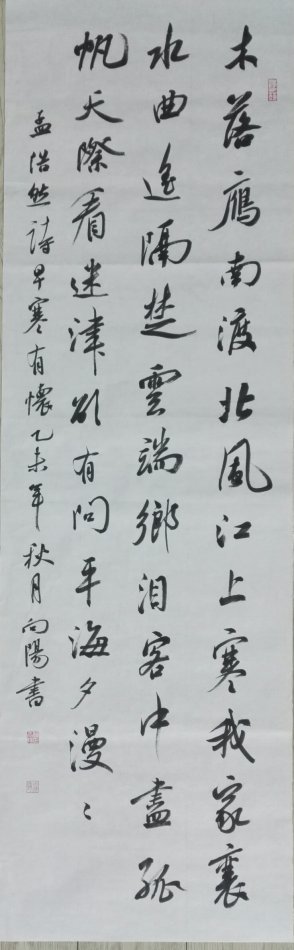 木落雁南渡北風江上寒我家襄
水曲遥隔楚雲端鄉泪客中盡孤
帆天際看迷津欲有问平海夕漫〻
孟浩然詩早寒有懷乙未年秋月向陽書